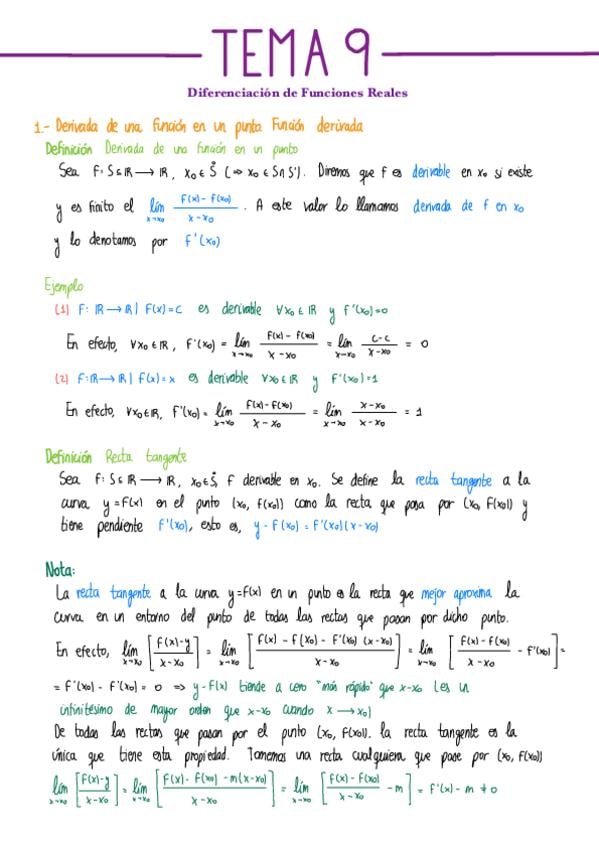 TEMA 9
Diferenciación de Funciones Reales
1.- Derivada de una función en un punto. Función derivada
Definición Derivada de una función en un punto
Sea f: S⊆ℝ → ℝ, x₀ ∈ S̊ (⇔ x₀ ∈ S∩S'). Diremos que f es derivable en x₀ si existe
y es finito el lím_{x→x₀} (f(x) - f(x₀))/(x - x₀). A este valor lo llamamos derivada de f en x₀
y lo denotamos por f'(x₀)
Ejemplo
(1) f: ℝ → ℝ | f(x) = c es derivable ∀x₀ ∈ ℝ y f'(x₀)=0
En efecto, ∀x₀ ∈ ℝ, f'(x₀) = lím_{x→x₀} (f(x) - f(x₀))/(x - x₀) = lím_{x→x₀} (c-c)/(x-x₀) = 0
(2) f: ℝ → ℝ | f(x) = x es derivable ∀x₀ ∈ ℝ y f'(x₀)=1
En efecto, ∀x₀ ∈ ℝ, f'(x₀) = lím_{x→x₀} (f(x) - f(x₀))/(x - x₀) = lím_{x→x₀} (x-x₀)/(x-x₀) = 1
Definición Recta tangente
Sea f: S⊆ℝ → ℝ, x₀ ∈ S̊, f derivable en x₀. Se define la recta tangente a la
curva y = f(x) en el punto (x₀, f(x₀)) como la recta que pasa por (x₀, f(x₀)) y
tiene pendiente f'(x₀), esto es, y - f(x₀) = f'(x₀)(x - x₀)
Nota:
La recta tangente a la curva y = f(x) en un punto es la recta que mejor aproxima la
curva en un entorno del punto de todas las rectas que pasan por dicho punto.
En efecto, lím_{x→x₀} [(f(x)-y)/(x-x₀)] = lím_{x→x₀} [(f(x) - f(x₀) - f'(x₀)(x-x₀))/(x-x₀)] = lím_{x→x₀} [(f(x)-f(x₀))/(x-x₀) - f'(x₀)] =
= f'(x₀) - f'(x₀) = 0 ⇒ y - f(x) tiende a cero "más rápido" que x-x₀ (es un
infinitésimo de mayor orden que x-x₀ cuando x → x₀)
De todas las rectas que pasan por el punto (x₀, f(x₀)), la recta tangente es la
única que tiene esta propiedad. Tomemos una recta cualquiera que pase por (x₀, f(x₀))
lím_{x→x₀} [(f(x)-y)/(x-x₀)] = lím_{x→x₀} [(f(x) - f(x₀) - m(x-x₀))/(x-x₀)] = lím_{x→x₀} [(f(x)-f(x₀))/(x-x₀) - m] = f'(x₀) - m ≠ 0